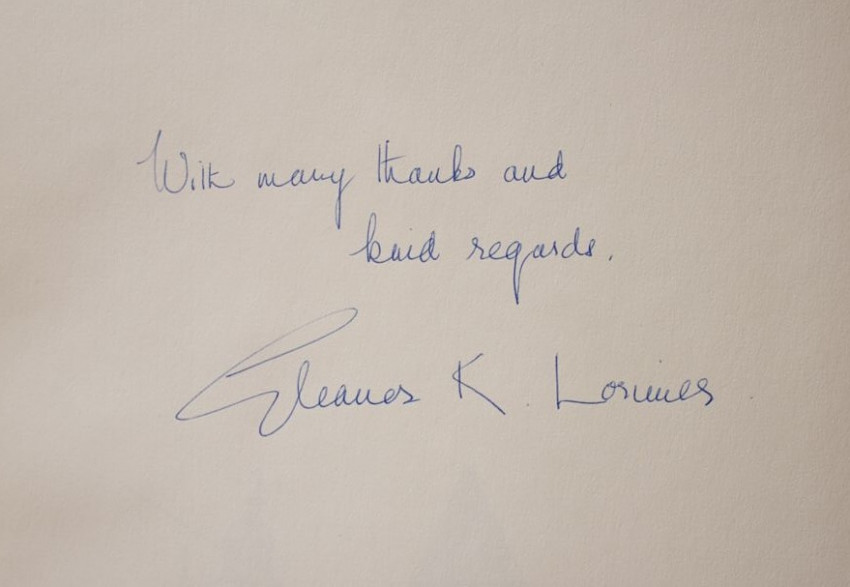 With many thanks and
kind regards.
Eleanor K. Lorimer